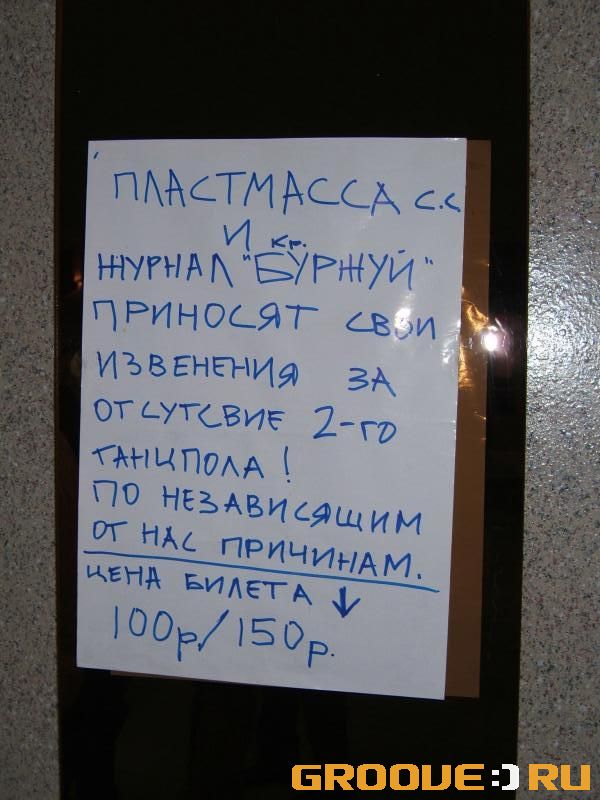 ПЛАСТМАССА С.С.
И кр.
ЖУРНАЛ "БУРЖУЙ"
ПРИНОСЯТ СВОИ
ИЗВЕНЕНИЯ ЗА
ОТСУТСВИЕ 2-ГО
ТАНЦПОЛА!
ПО НЕЗАВИСЯЩИМ
ОТ НАС ПРИЧИНАМ.
ЦЕНА БИЛЕТА ↓
100р./150р.
GROOVE:)RU